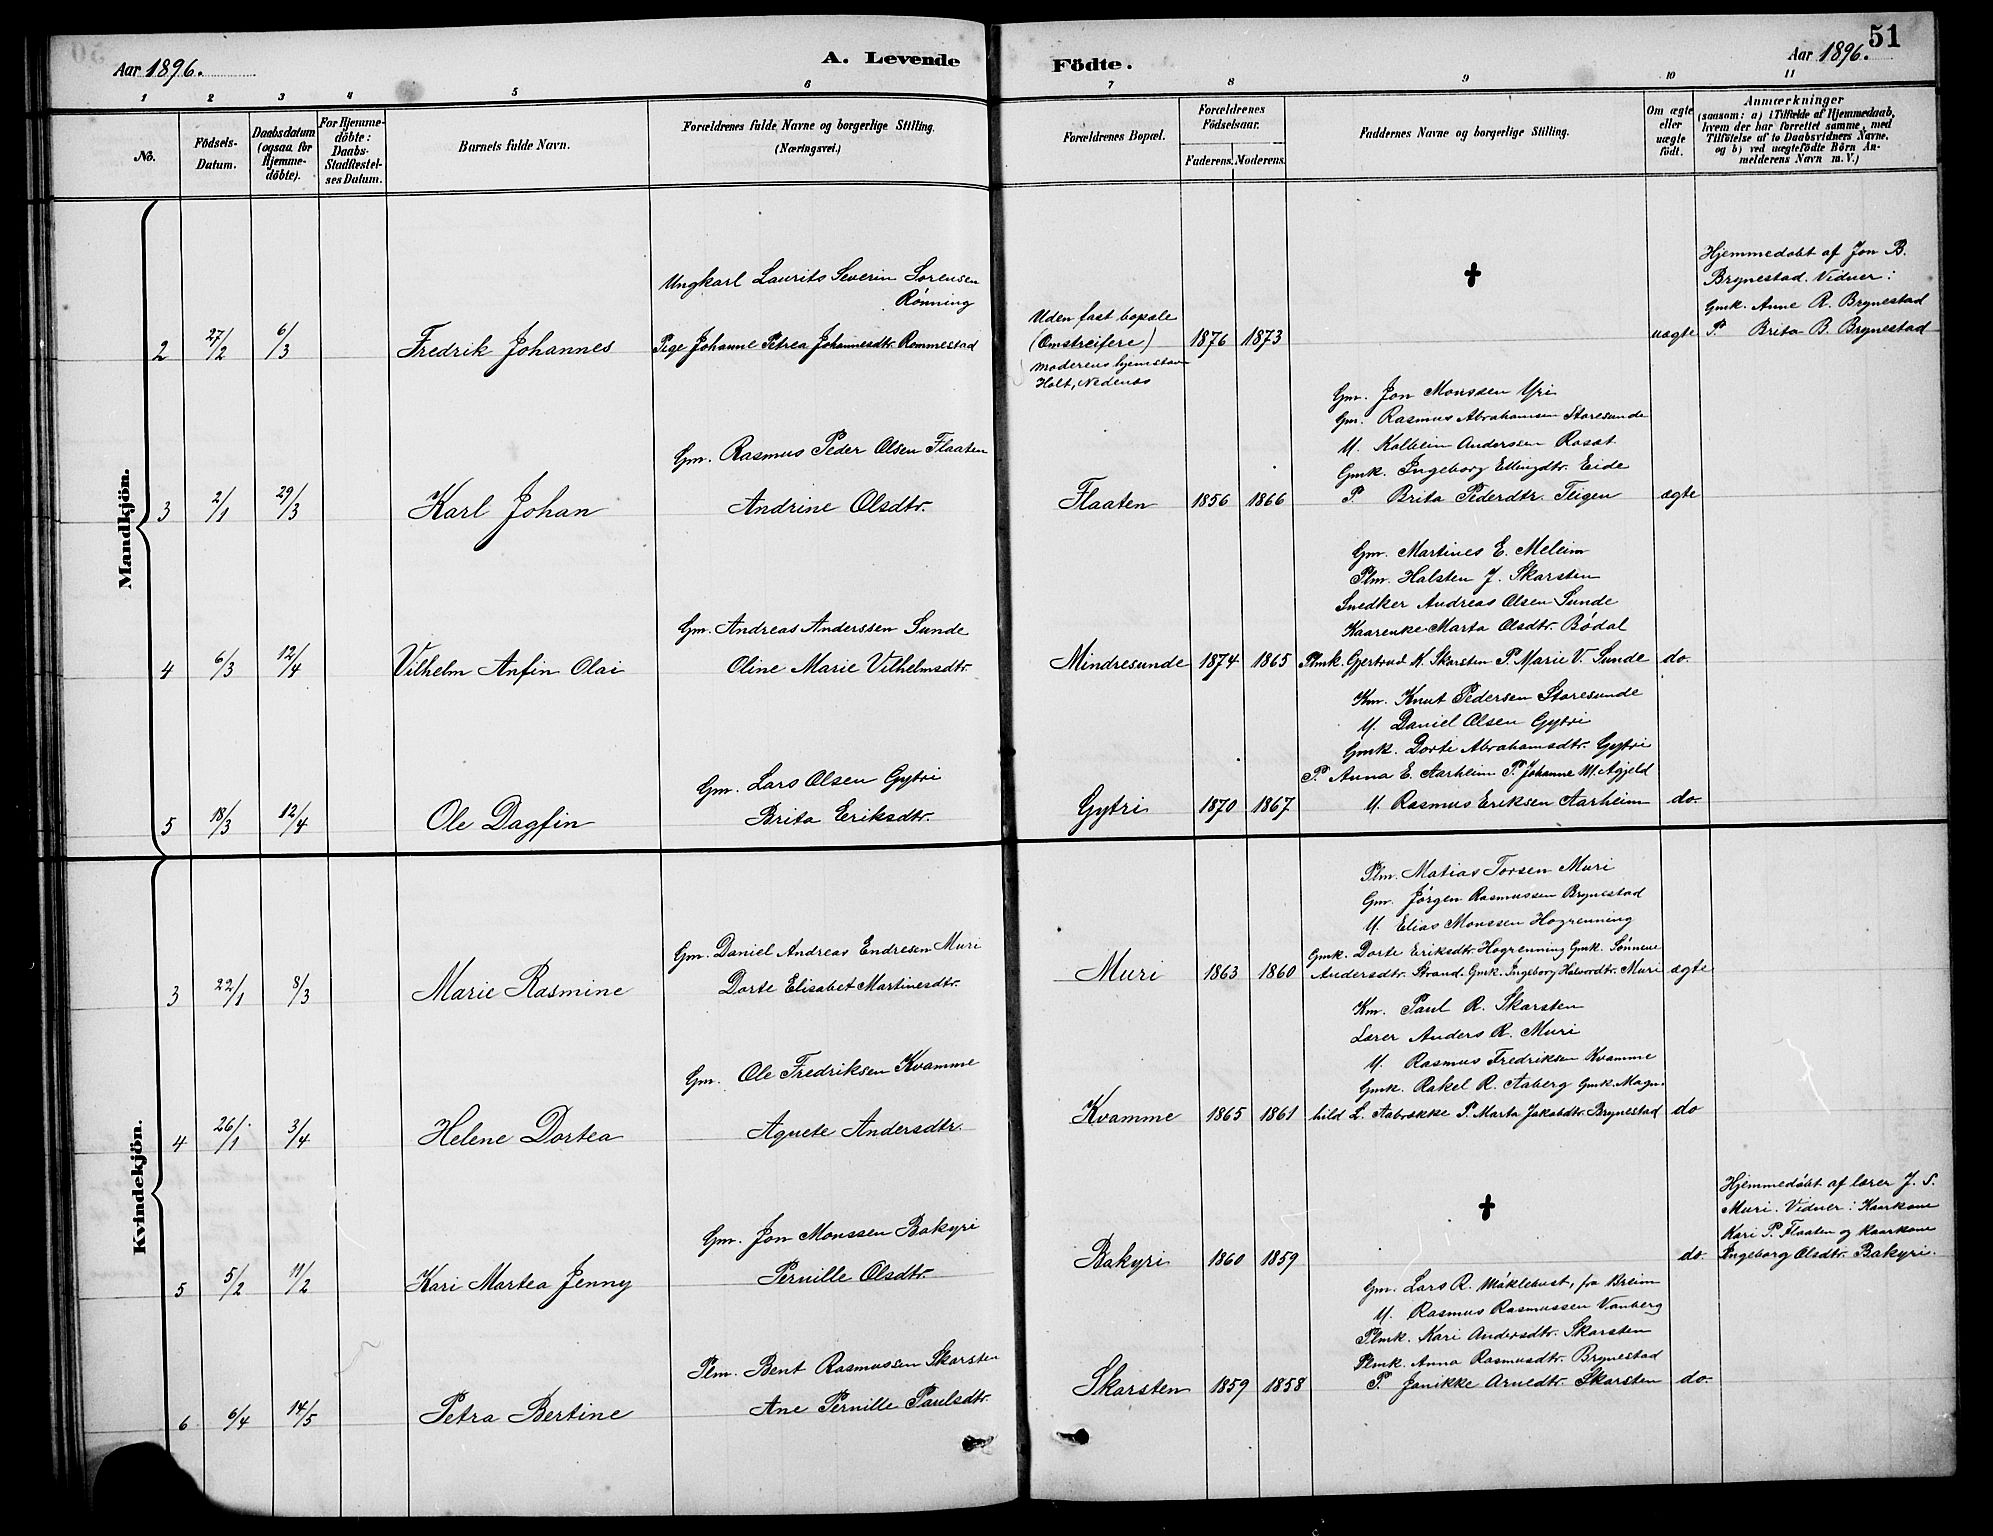 Aar 1896.
A. Levende
1 2 3 4 5 6
No.
Födsels-
Datum.
Daabsdatum
(ogsaa for
Hjemme-
döbte).
For Hjemme-
döbte:
Daabs-
Stadfestel-
ses Datum.
Barnets fulde Navn.
Forældrenes fulde Navne og borgerlige Stilling.
(Næringsvei.)
Födte.
51
Aar 1896.
7 8 9 10 11
Forældrenes Bopæl.
Forældrenes
Födselsaar.
Faderens. Moderens.
Faddernes Navne og borgerlige Stilling.
Om ægte
eller
uægte
födt.
Anmærkninger
(saasom: a) i Tilfælde af Hjemmedaab,
hvem der har forrettet samme, med
Tilföielse af to Daabsvidners Navne.
og b) ved uægtefödte Börn An-
melderens Navn m. V.)
Mandkjön.
Ungkarl Laurits Severin Sorensen
Rönning
2 27/2 6/3 Fredrik Johannes Pige Johanne Petrea Johannesdtr. Rommestad
Uden fast bopæle
(Omstreifere) 1876 1873
Moderens hjemstavn
Holt, Nedenæs
✝
uægte
Hjemmedøbt af Jon B.
Brynestad. Vidner:
Gmk. Anne R. Brynestad
P. Brita B. Brynestad
Gm. Rasmus Peder Olsen Flaaten
3 2/1 29/3 Karl Johan Andrine Olsdtr.
Flaaten 1856 1866
Gm. Jon Monssen Yri
Gm. Rasmus Abrahamsen Storesunde
U. Kolbein Andersen Rosæt
Gmk. Ingeborg Ellingdtr. Eide
P. Brita Pederdtr. Teigen ægte
Gm. Andreas Anderssen Sunde
4 6/3 12/4 Vilhelm Anfin Olai Oline Marie Vilhelmsdtr.
Mindresunde 1874 1865
Gm. Martines E. Meleim
Plm. Halsten J. Skarsten
Snedker Andreas Olsen Sunde
Kaarenke Marta Olsdtr. Bödal
Plmk. Gjertrud K. Skarsten P. Marie V. Sunde do.
Gm. Lars Olsen Gytri
5 18/3 12/4 Ole Dagfin Brita Eriksdtr.
Gytri 1870 1867
Km. Knut Pedersen Storesunde
U. Daniel Olsen Gytri
Gmk. Dorte Abrahamsdtr. Gytri
P. Anna E. Aarheim P. Johanne M. Agjeld
U. Rasmus Eriksen Aarheim do.
Kvindekjön.
Gm. Daniel Andreas Endresen Muri
3 22/1 8/3 Marie Rasmine Dorte Elisabet Martinesdtr.
Muri 1863 1860
Plm. Matias Torsen Muri
Gm. Jörgen Rasmussen Brynestad
U. Elias Monssen Hogrenning
Gmk. Dorte Eriksdtr. Hogrenning Gmk. Sönneve
Andersdtr. Strand. Gmk. Ingeborg Halvordtr. Muri ægte
Gm. Ole Fredriksen Kvamme
4 26/1 3/4 Helene Dortea Agnete Andersdtr.
Kvamme 1865 1861
Km. Paul R. Skarsten
Lærer Anders R. Muri
U. Rasmus Fredriksen Kvamme
Gmk. Rakel R. Aaberg Gmk. Magn-
hild L. Aabrække P. Marta Jakobdtr. Brynestad do
Gm. Jon Monssen Bakyri
5 5/2 11/2 Kari Martea Jenny Pernille Olsdtr.
Bakyri 1860 1859
✝
do.
Hjemmedøbt af lærer J. S.
Muri. Vidner: Kaarkone
Kari P. Flaaten og kaarkone
Ingeborg Olsdtr. Bakyri.
Plm. Bent Rasmussen Skarsten
6 6/4 14/5 Petra Bertine Ane Pernille Paulsdtr.
Skarsten 1859 1858
Gm. Lars R. Myklebust, fra Breim
U. Rasmus Rasmussen Vanberg
Plmk. Kari Andersdtr. Skarsten
Plmk. Anna Rasmusdtr. Brynestad
P. Janikke Arnedtr. Skarsten do.